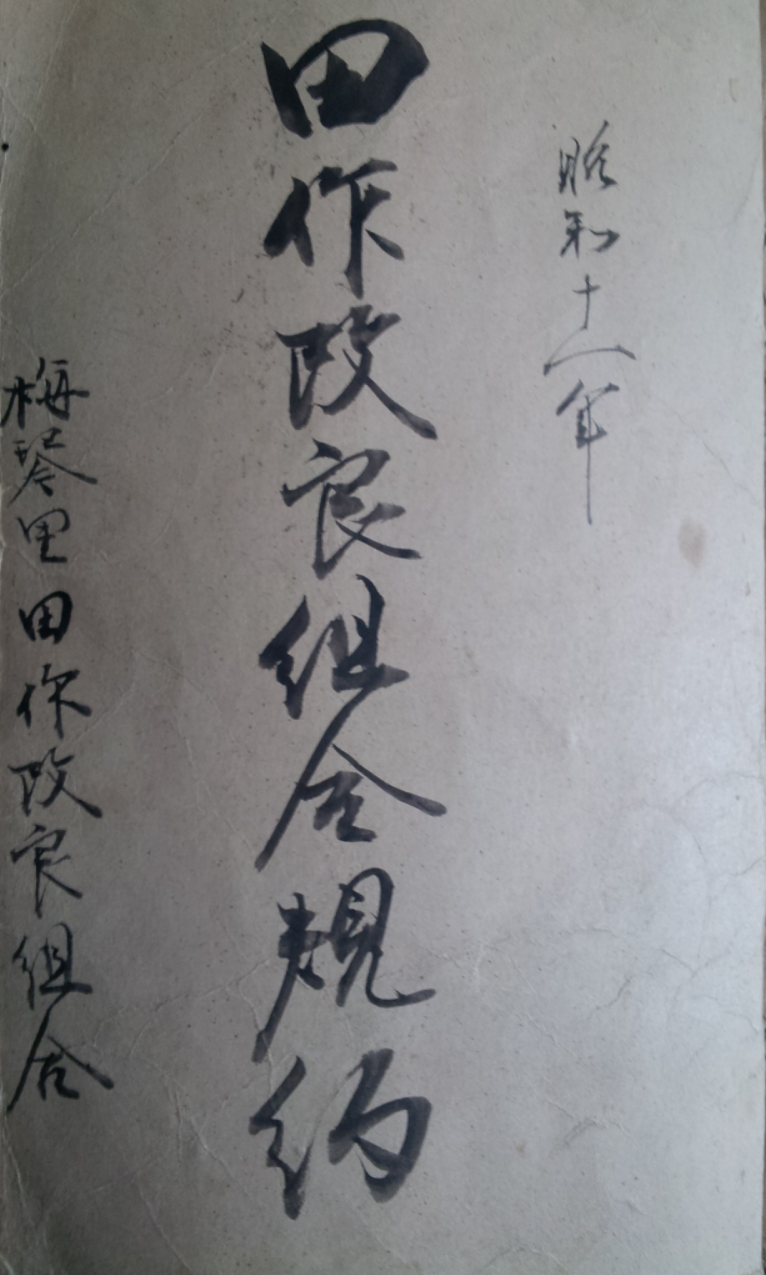 昭和十八年
田作改良組合規約
梅琴里田作改良組合